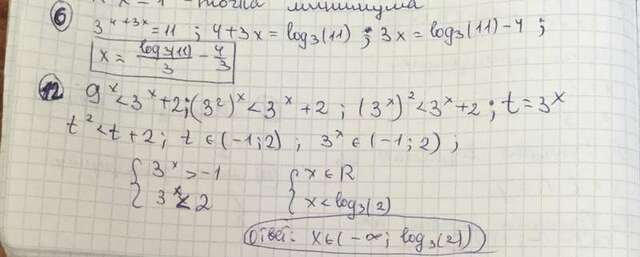 x = 1 - точка минимума
⑥ 3^(4+3x) = 11 ; 4+3x = log₃(11) ; 3x = log₃(11) - 4 ;
x = log₃(11)/3 - 4/3
⑫ 9^x < 3^x + 2 ; (3²)^x < 3^x + 2 ; (3^x)² < 3^x + 2 ; t = 3^x
t² < t + 2 ; t ∈ (-1; 2) ; 3^x ∈ (-1; 2) ;
{ 3^x > -1 { x ∈ R
{ 3^x < 2 { x < log₃(2)
Ответ: x ∈ (-∞; log₃(2))